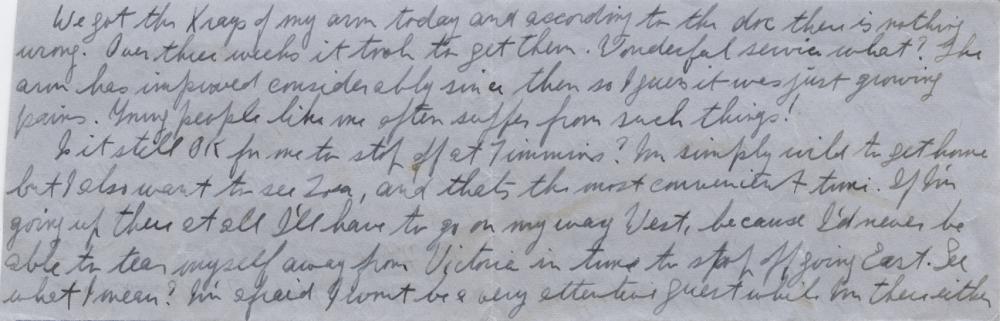 We got the Xrays of my arm today and according to the doc there is nothing
wrong. Over three weeks it took to get them. Wonderful service what? The
arm has improved considerably since then so I guess it was just growing
pains. Young people like me often suffer from such things!
Is it still OK for me to stop off at Timmins? I'm simply wild to get home
but I also want to see Zoa, and that's the most convenient time. If I'm
going up there at all I'll have to go on my way West, because I'd never be
able to tear myself away from Victoria in time to stop off going East. See
what I mean? I'm afraid I won't be a very attentive guest while I'm there either